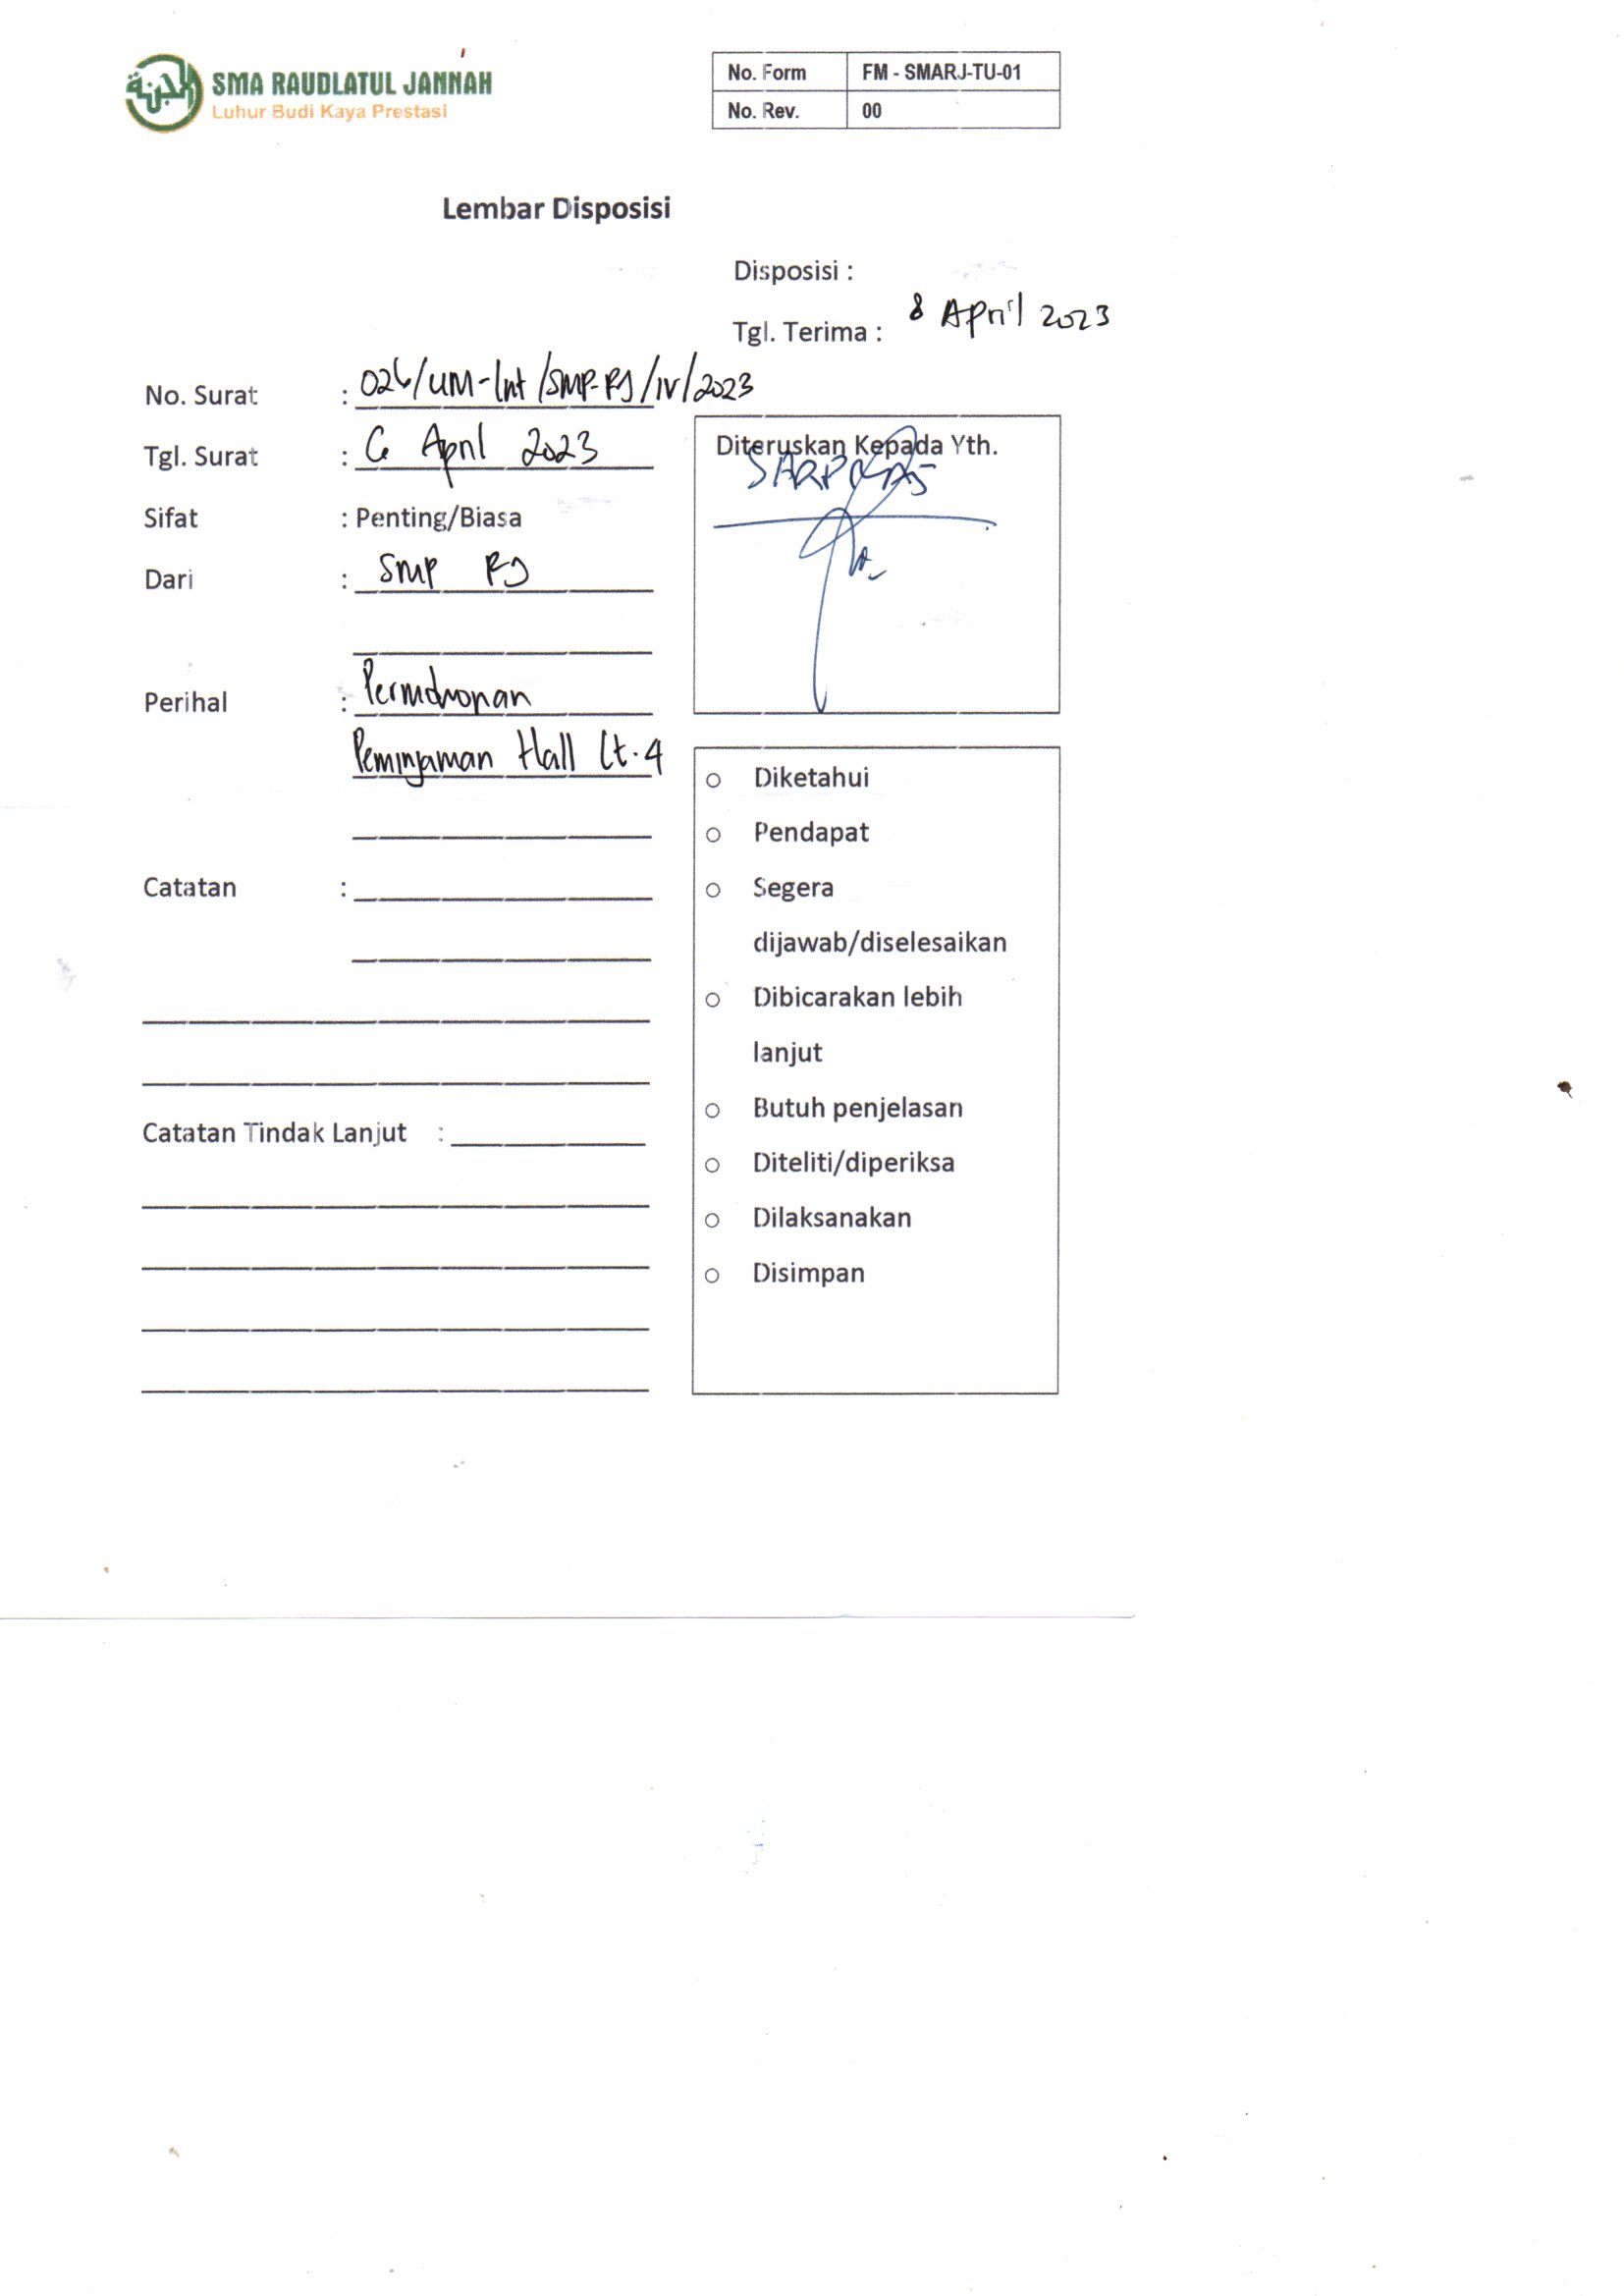 SMA RAUDLATUL JANNAH
Luhur Budi Kaya Prestasi
No. Form FM - SMARJ-TU-01
No. Rev. 00
Lembar Disposisi
Disposisi :
Tgl. Terima : 8 April 2023
No. Surat : 026/UM-Int/SMP-RJ/IV/2023
Tgl. Surat : 6 April 2023
Sifat : Penting/Biasa
Dari : SMP RJ
Perihal : Permohonan
Peminjaman Hall Lt.4
Catatan :
Catatan Tindak Lanjut :
Diteruskan Kepada Yth.
SARPRAS
Diketahui
Pendapat
Segera
dijawab/diselesaikan
Dibicarakan lebih
lanjut
Butuh penjelasan
Diteliti/diperiksa
Dilaksanakan
Disimpan